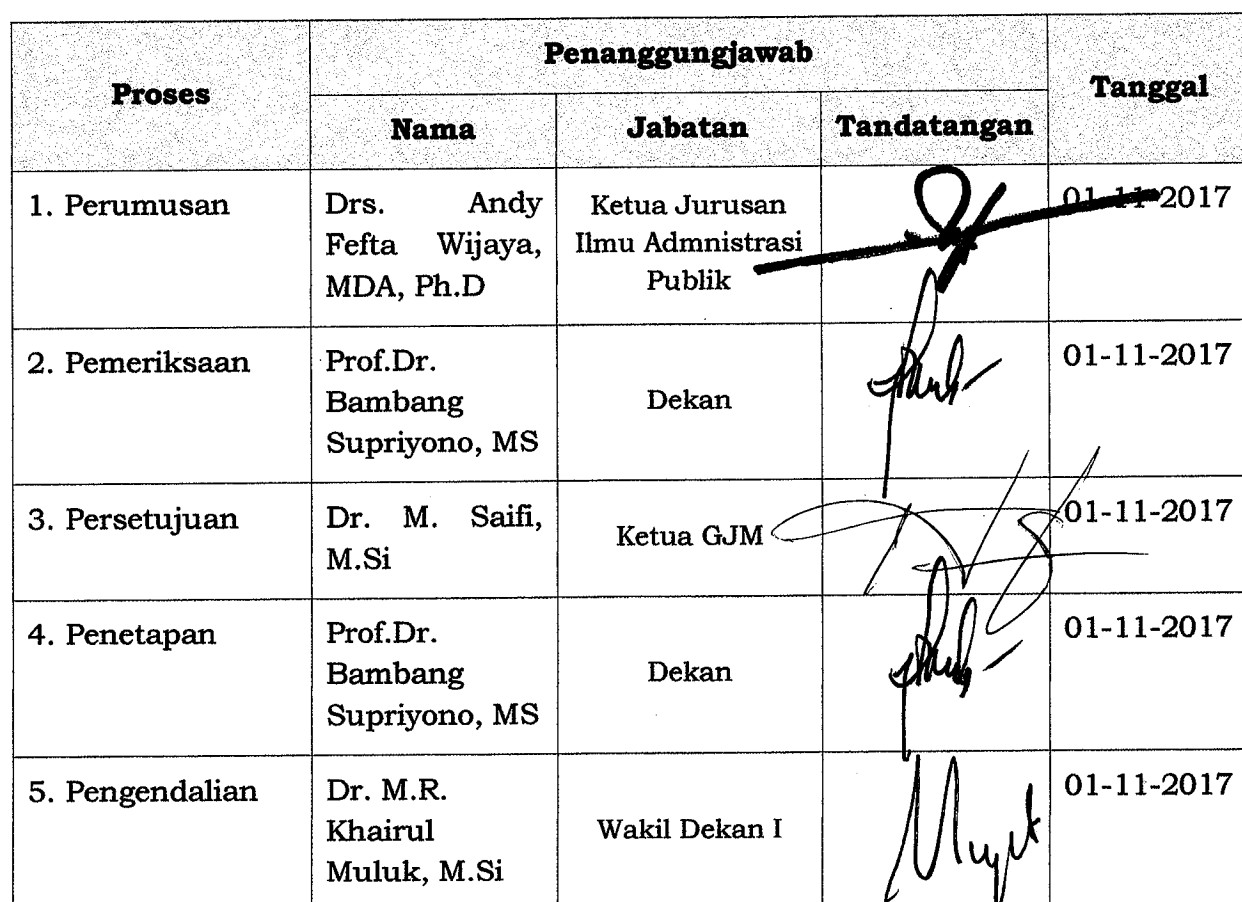 Proses
Penanggungjawab
Tanggal
Nama
Jabatan
Tandatangan
1. Perumusan
Drs. Andy
Fefta Wijaya,
MDA, Ph.D
Ketua Jurusan
Ilmu Admnistrasi
Publik
01-11-2017
2. Pemeriksaan
Prof.Dr.
Bambang
Supriyono, MS
Dekan
01-11-2017
3. Persetujuan
Dr. M. Saifi,
M.Si
Ketua GJM
01-11-2017
4. Penetapan
Prof.Dr.
Bambang
Supriyono, MS
Dekan
01-11-2017
5. Pengendalian
Dr. M.R.
Khairul
Muluk, M.Si
Wakil Dekan I
01-11-2017